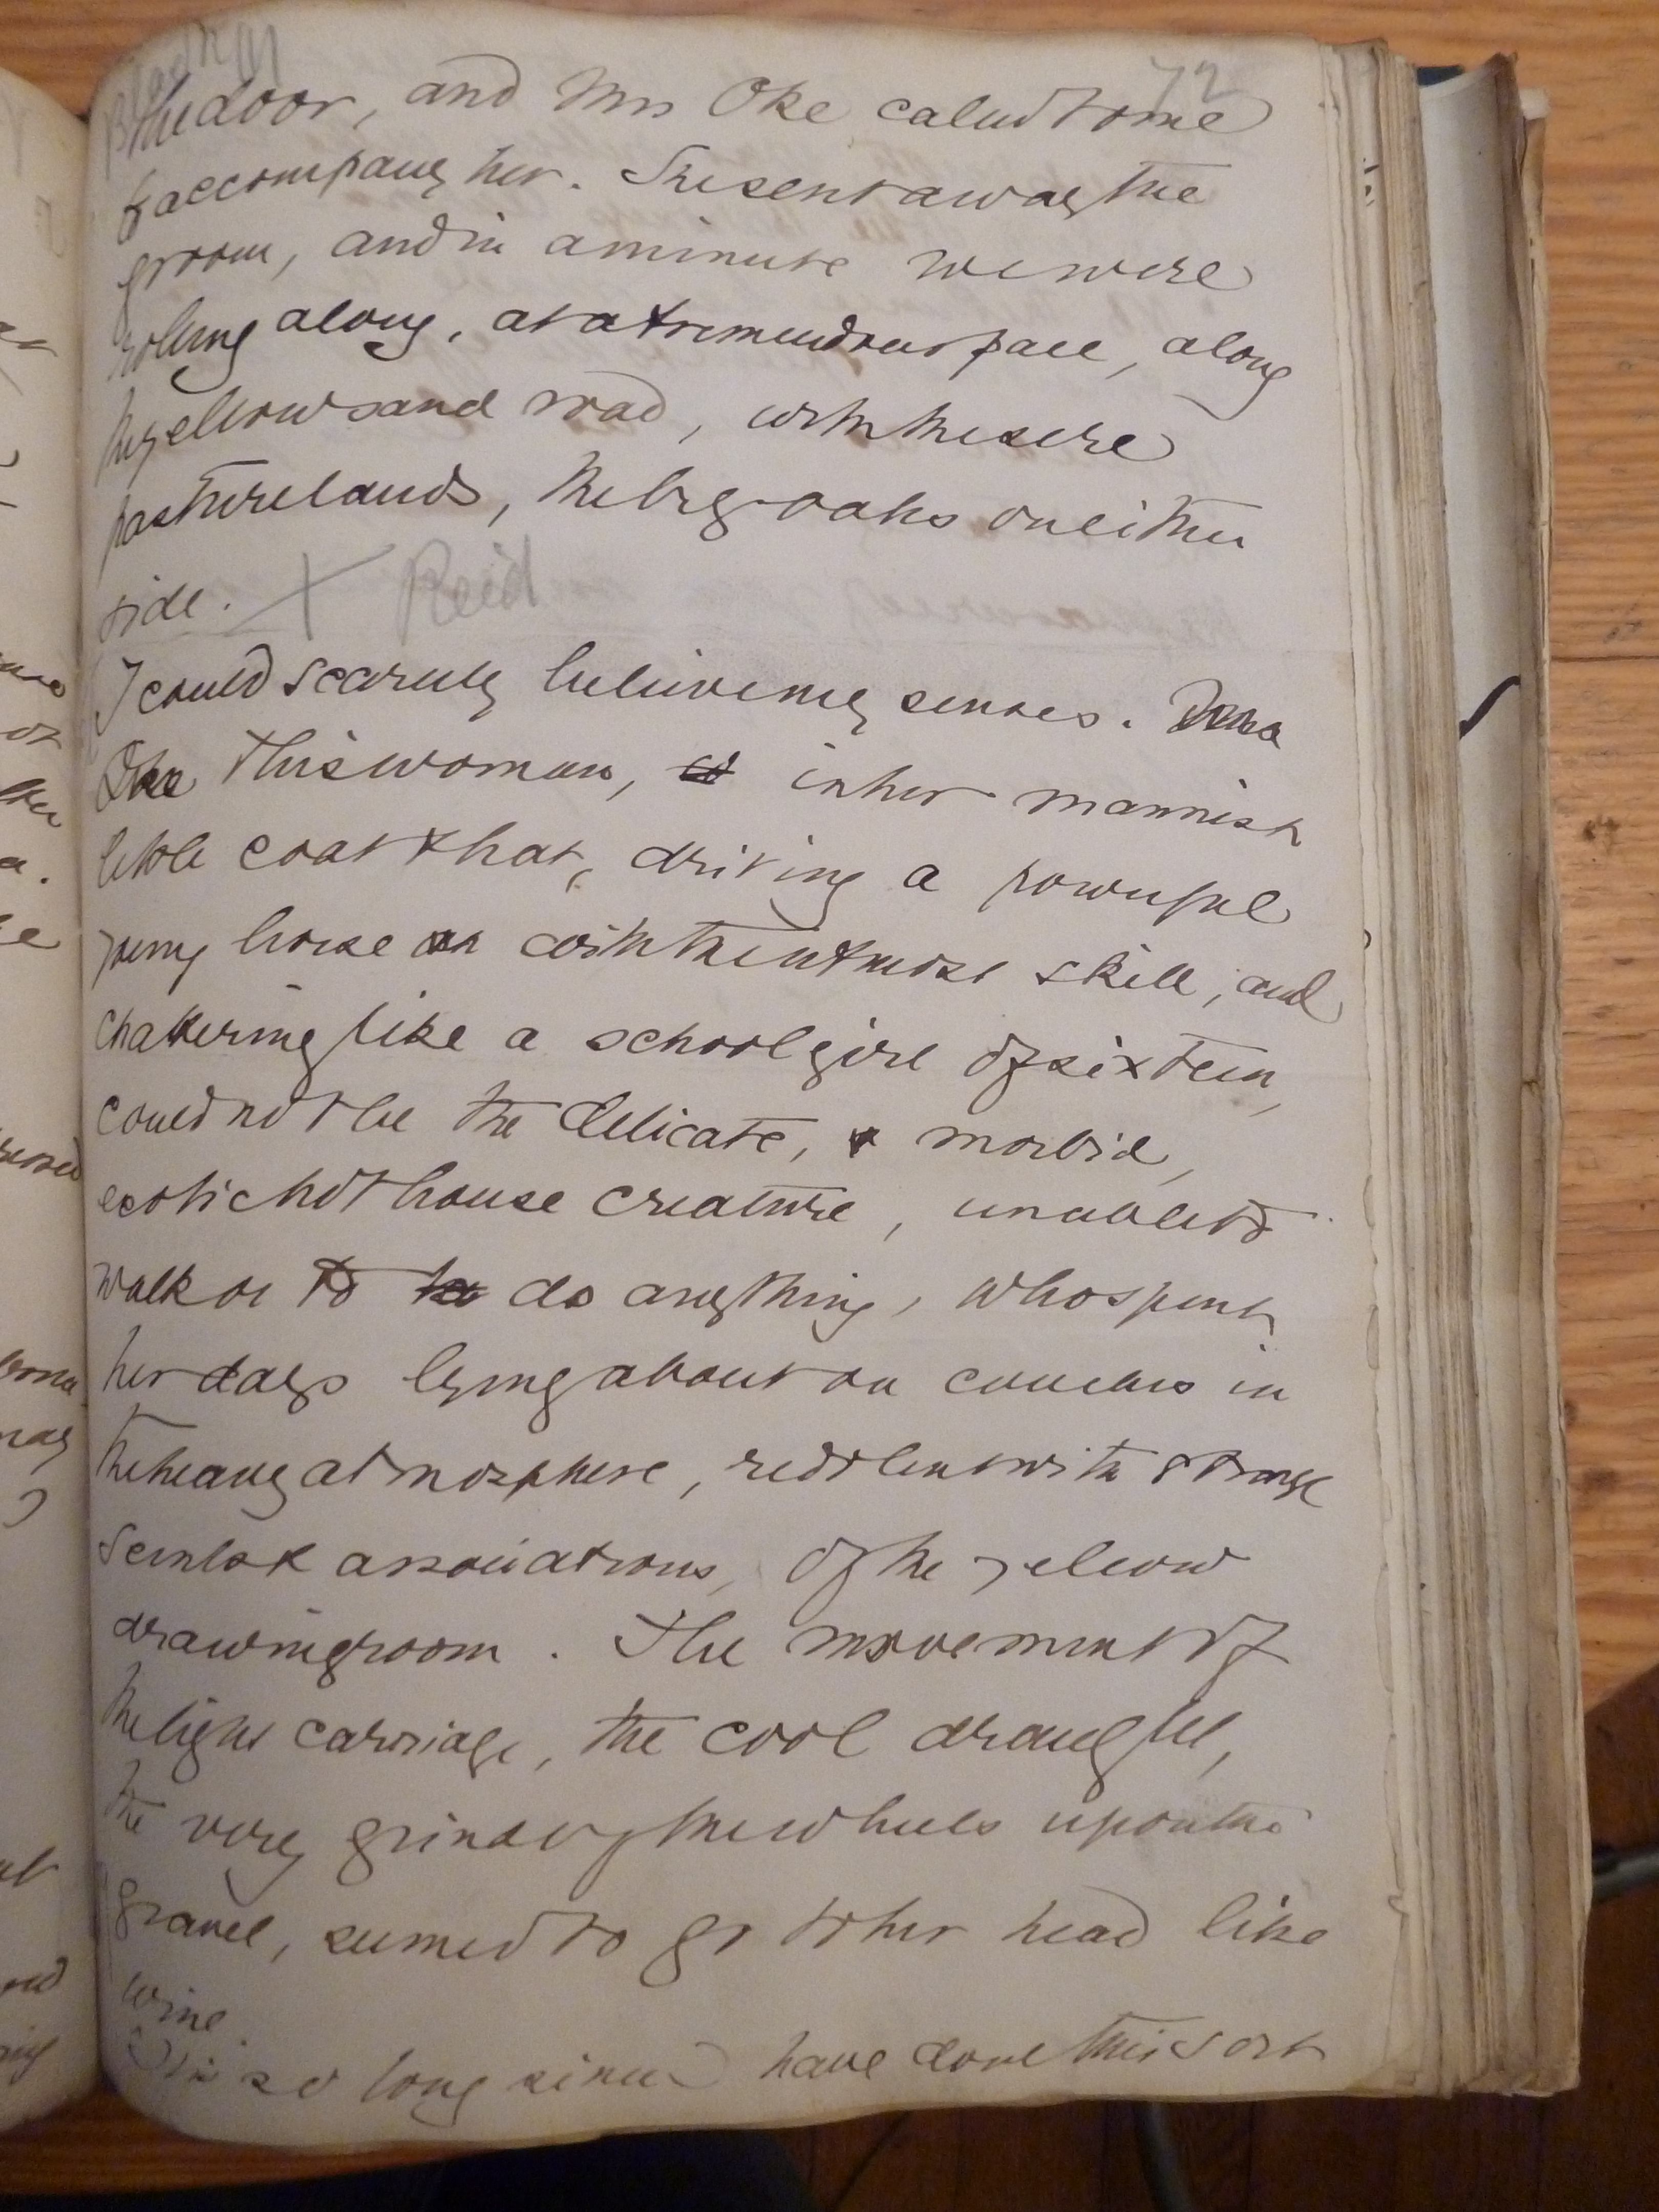 72
the door, and Mrs Oke called to me
to accompany her. She sent away the
groom, and in a minute we were
rolling along, at a tremendous pace, along
the yellow sand road, with the sere
pasturelands, the big oaks on either
side. X Reid
I could scarcely believe my senses.
Oke This woman, in her mannish
little coat & hat, driving a powerful
young horse with the utmost skill, and
chattering like a schoolgirl of sixteen,
could not be the delicate, morbid,
exotic hothouse creature, unable to
walk or to do anything, who spent
her days lying about on couches in
the heavy atmosphere, redolent with strange
scents & associations, of the yellow
drawingroom. The movement of
the light carriage, the cool draught,
the very grind of the wheels upon the
gravel, seemed to go to her head like
wine.
so long since I have done this sort